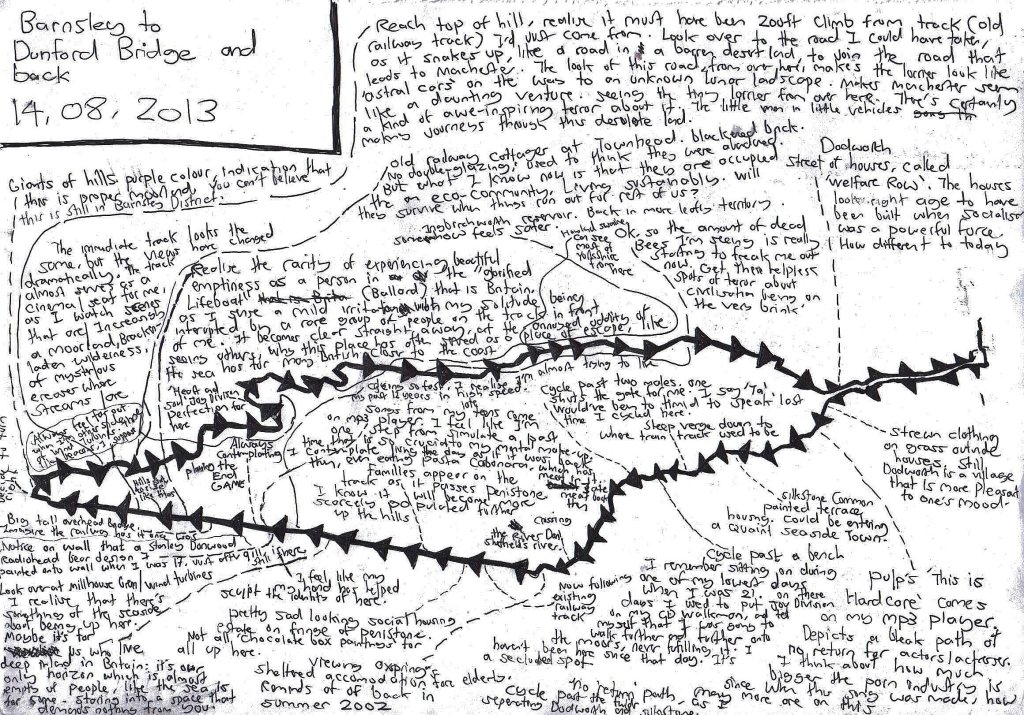 Barnsley to
Dunford Bridge and
back
14, 08, 2013
Reach top of hill, realise it must have been 200ft climb from track (old
railway track) I'd just come from. Look over to the road I could have taken,
as it snakes up, like a road in a barren desert land, to join the road that
leads to Manchester. The look of this road, from over here, makes the lorries look like
astral cars on the way to an unknown lunar landscape. Makes manchester seem
like a daunting venture. Seeing the tiny lorries from over here. There's certainly
a kind of awe-inspiring terror about it. The little men in little vehicles
making journeys through this desolate land.
Giants of hills purple colour, indication that
this is proper moorland, you can't believe that
this is still in Barnsley District.
old railway cottages at Townhead. blackened brick.
No double glazing, used to think they were abandoned.
But what I know now is that they are occupied
by an eco-community. Living sustainably. Will
they survive when things run out for rest of us?
Ingbirchworth reservoir. Back in more leafy territory.
somehow feels safer.
Dodworth
Street of houses, called
'Welfare Row'. The houses
look right age to have
been built when socialism
was a powerful force.
How different to today
Ok, so the amount of dead
Bees I'm seeing is really
starting to freak me out
now. Get then helpless
spots of terror about
civilisation being on
the very brink.
can see
most of
Yorkshire
from
here
The immediate track looks the
same, but the views have changed
dramatically. The track
almost serves as a
cinema seat for me,
as I watch scenes
that are increasingly
a moorland, Bracken
laden wilderness
of mysterious
creases where
streams lare
Realise the rarity of experiencing beautiful
emptiness as a person in the "glorified
Lifeboat" (Ballard) that is Britain
as I surge a mild irritation with my solitude being
interrupted by a rare group of people on the tracks in front
of me. It becomes clear straight away, at the annoyed oddity of
seeing others, why this place has served as a place of escape, like
the sea has for many British close to the coast
I'm almost trying to like
Heat and
soul joy Division
perfection for
here
Always
contemplating
the
End
GAME
my past 12 years in high speed.
songs from my teens come
on mp3 player. I feel like I'm
one step from simulate a past
time that is so crucial to my mental make-up.
I contemplate
than even eating pasta Cabonara, which has
meat
Families appear on the
track as it passes Penistone
I know it will become more
scarcely populated further
up the hills
cycle past two males. one
shuts the gate for me. I say 'Ta'.
Would've been to timid to speak last
time I cycled here.
Steep verge down to
where train track used to be
strewn clothing
on grass outside
houses. Still
Dodworth is a village
that is more pleasant
to one's mood.
silkstone Common
painted terrace
housing. Could be entering
a quaint seaside Town.
crossing
the River Don
sheffield's river.
Big tall overhead Bridge.
Imagine the railway has it once was
Notice on wall that a Stanley Donwood
Radiohead bear design I
painted onto wall when I was 17, just off is still here
Look over at millhouse Green wind turbines
I realise that there's
something of the seaside
about being up here
Maybe it's for
us who live
deep inland in Britain: it's our
only horizon which is almost
empty of people, like the sea is
for some. Staring into a space that
demands nothing from you
I feel like my
mind has helped
sculpt the identity of here.
pretty sad looking social housing
estate on fringe of penistone.
Not all chocolate box paintings for
all up here.
Viewing exprings
sheltered accomodation for elderly.
Reminds of of back in
summer 2002
Now following
existing
railway
track
cycle past a bench
I remember sitting on during
one of my lowest days
when I was 21. on there
days I used to put Joy Division
on my CD walkman, and tell
myself that I was going to
walk further and further onto
the moors, never fulfilling it. I
haven't been here since that day. It's
a secluded spot
cycle past the tunnel
seperating Dodworth and silkstone.
Pulp's 'This is
Hardcore' comes
on my mp3 player.
Depicts a bleak path of
no return for actors/actresses.
I think about how much
bigger the porn industry is
since when this song was made, how
many more are on this
'no return' path, as I